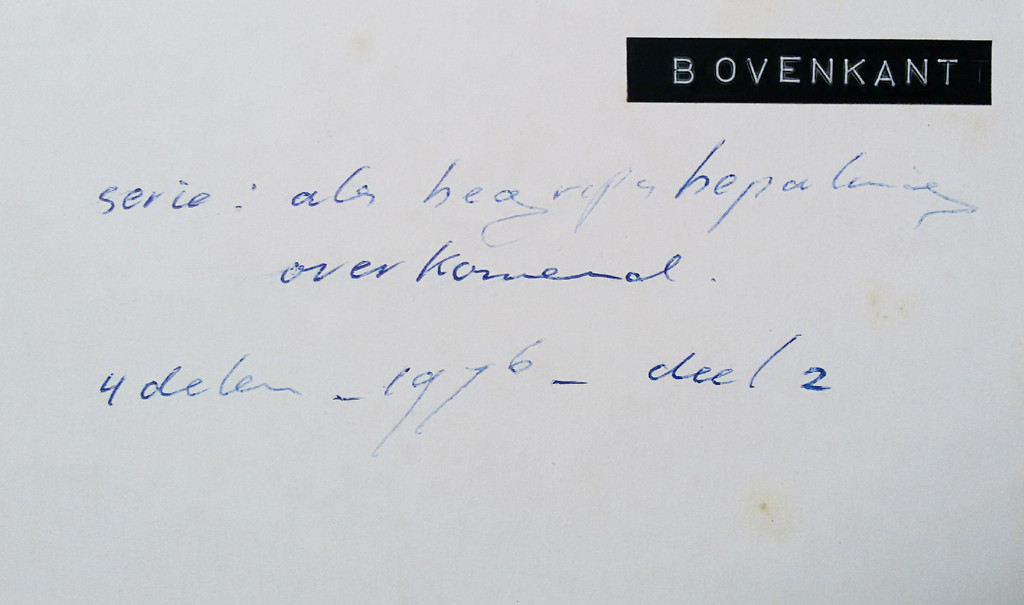 BOVENKANT
serie: als begripsbepaling
overkomend.
4 delen - 1976 - deel 2